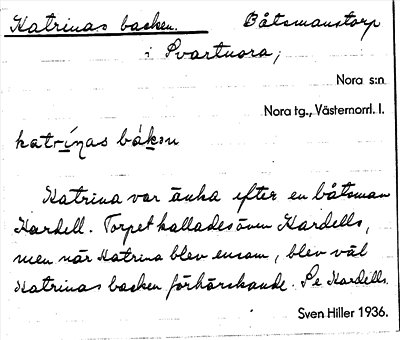 Katrinas backen. Båtsmanstorp
i Svartnora,
Nora s:n
Nora tg., Västernorrl. l.
katrínas bákən
Katrina var änka efter en båtsman
Hardell. Torpet kallades även Hardells,
men när Katrina blev ensam, blev väl
Katrinas backen förhärskande. Se Hardells.
Sven Hiller 1936.